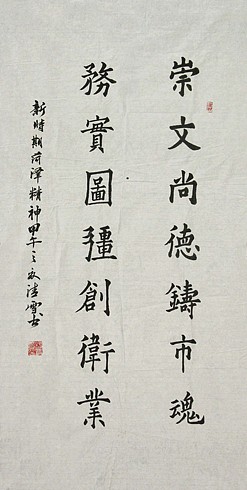 崇文尚德鑄市魂
務實圖彊創衛業
新時期菏澤精神甲午之秋